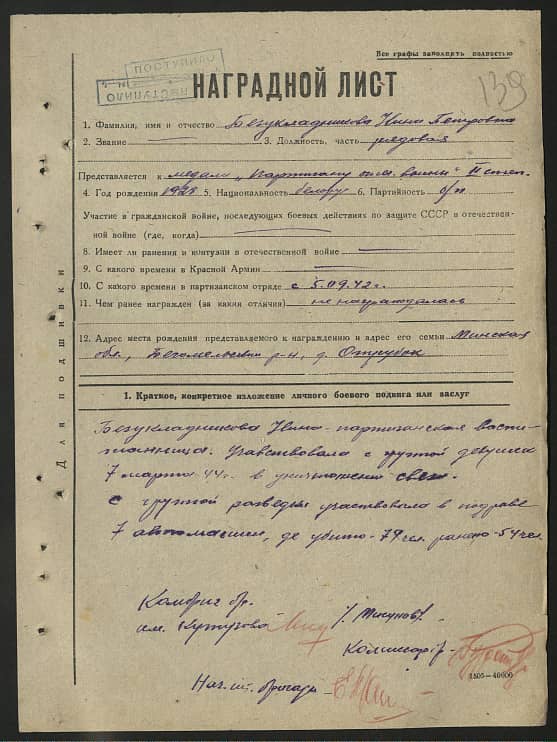 Все графы заполнить полностью
ПОСТУПИЛО
ПОСТУПИЛО
139
НАГРАДНОЙ ЛИСТ
1. Фамилия, имя и отчество Безукладникова Нина Петровна
2. Звание 3. Должность, часть рядовая
Представляется к медали "Партизану отеч. войны" II степ.
4. Год рождения 1928 5. Национальность белорус 6. Партийность б/п
Участие в гражданской войне, последующих боевых действиях по защите СССР в отечествен-
ной войне (где, когда)
8. Имеет ли ранения и контузии в отечественной войне
9. С какого времени в Красной Армии
10. С какого времени в партизанском отряде с 5.09.42 г.
11. Чем ранее награжден (за какия отличия) не награждалась
12. Адрес места рождения представляемого к награждению и адрес его семьи Минская
обл., Бегомельский р-н, д. Отрубок
Для подшивки
1. Краткое, конкретное изложение личного боевого подвига или заслуг
Безукладникова Нина - партизанская воспи-
танница. Участвовала с группой девушек
7 марта 44 г. в уничтожении связи.
С группой разведки участвовала в подрыве
7 автомашин, де убито - 79 чел. ранено - 54 чел.
Комбриг бр.
им. Кутузова
Комиссар бр.
Нач. шт. бригады
1505-40000